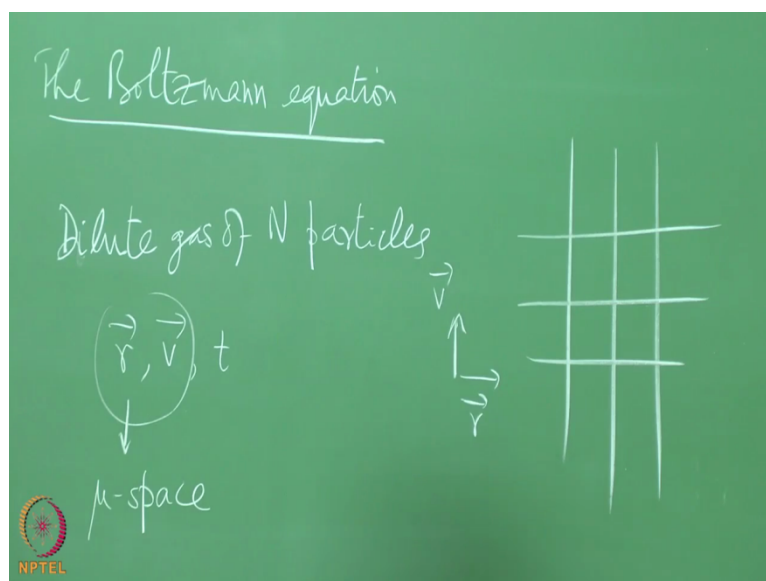 The Boltzmann equation
Dilute gas of N particles
r⃗, v⃗, t
μ-space
v⃗
r⃗
NPTEL